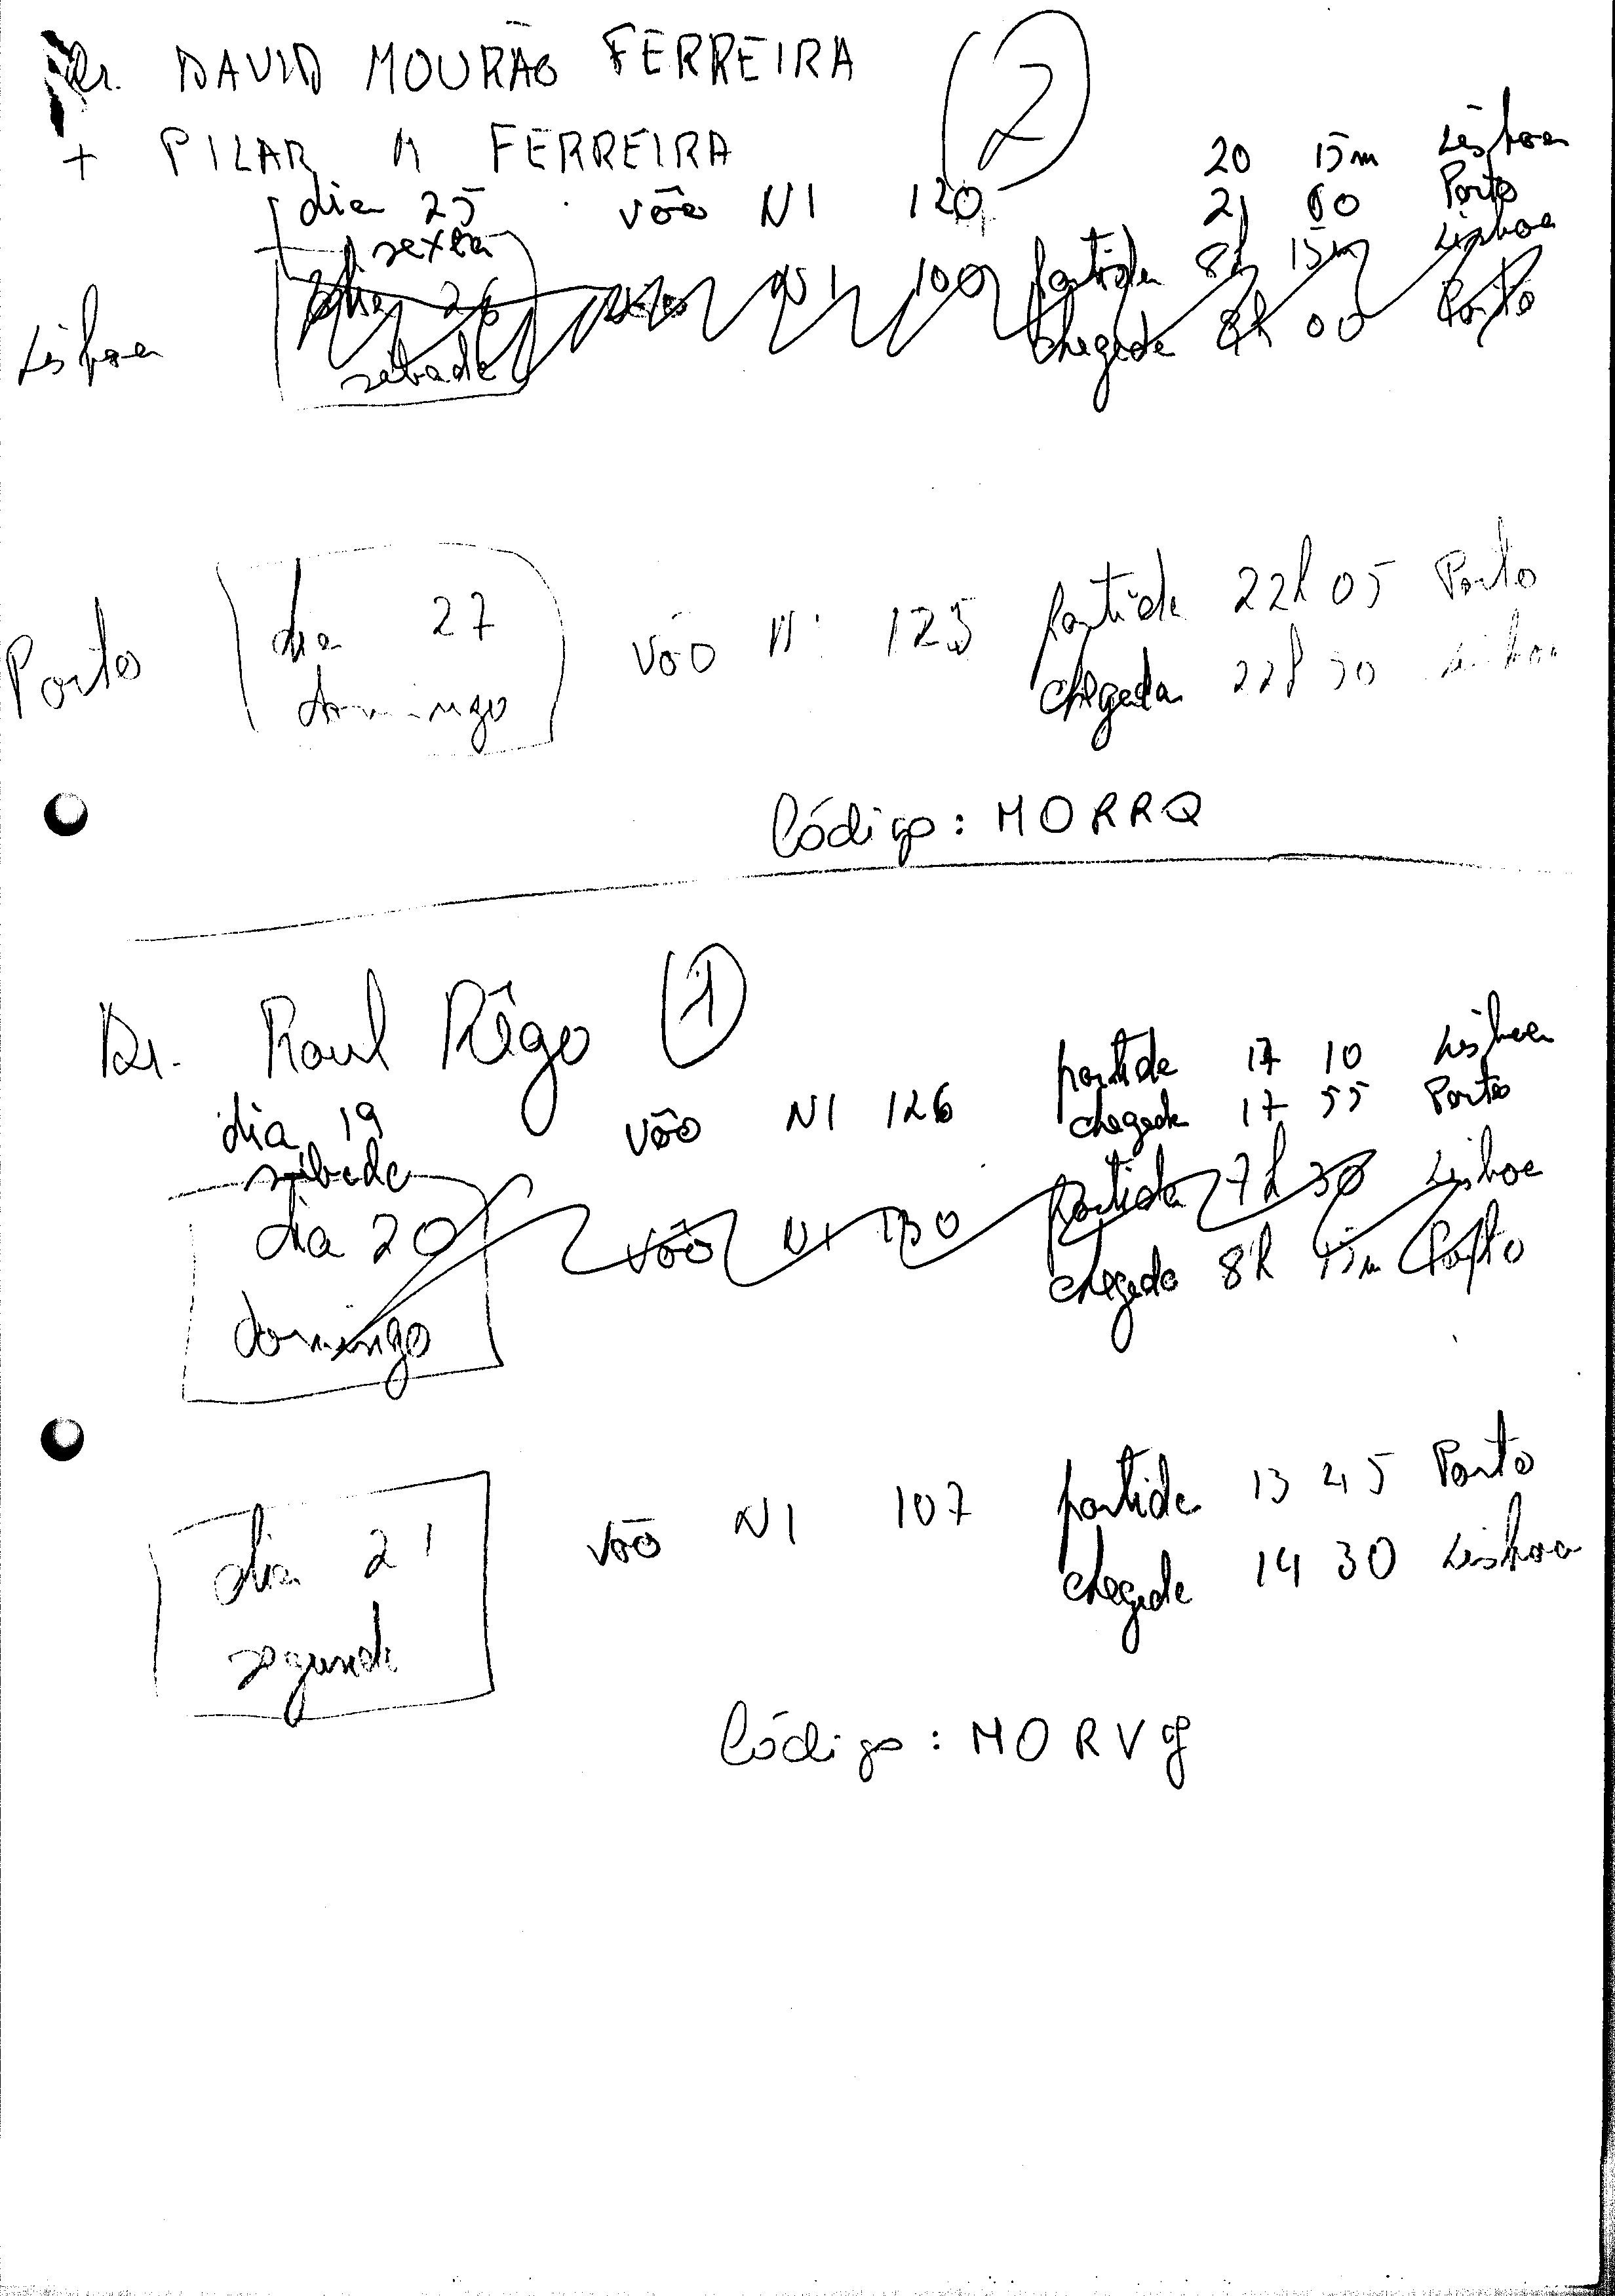 Dr. DAVID MOURÃO FERREIRA (2)
+ PILAR M FERREIRA
20 15m Lisboa
dia 25 vôo NI 120 21 00 Porto
sexta
Lisboa dia 26 vôo NI 100 partida 8h 15m Lisboa
sabado chegada 9h 00 Porto
Porto dia 27 vôo NI 125 partida 22h 05 Porto
domingo chegada 22h 50 Lisboa
Código: MORRQ
Dr. Raul Rêgo (1)
partida 17 10 Lisboa
dia 19 vôo NI 126 chegada 17 55 Porto
sábado
dia 20 vôo NI 130 partida 7h 30 Lisboa
domingo chegada 8h 15m Porto
dia 21 vôo NI 107 partida 13 45 Porto
segunda chegada 14 30 Lisboa
Código: MORV